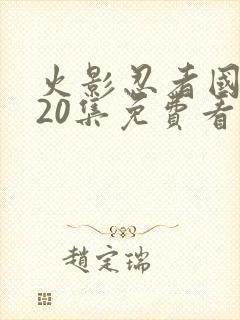 火影忍者國
20集免費看
趙定瑞